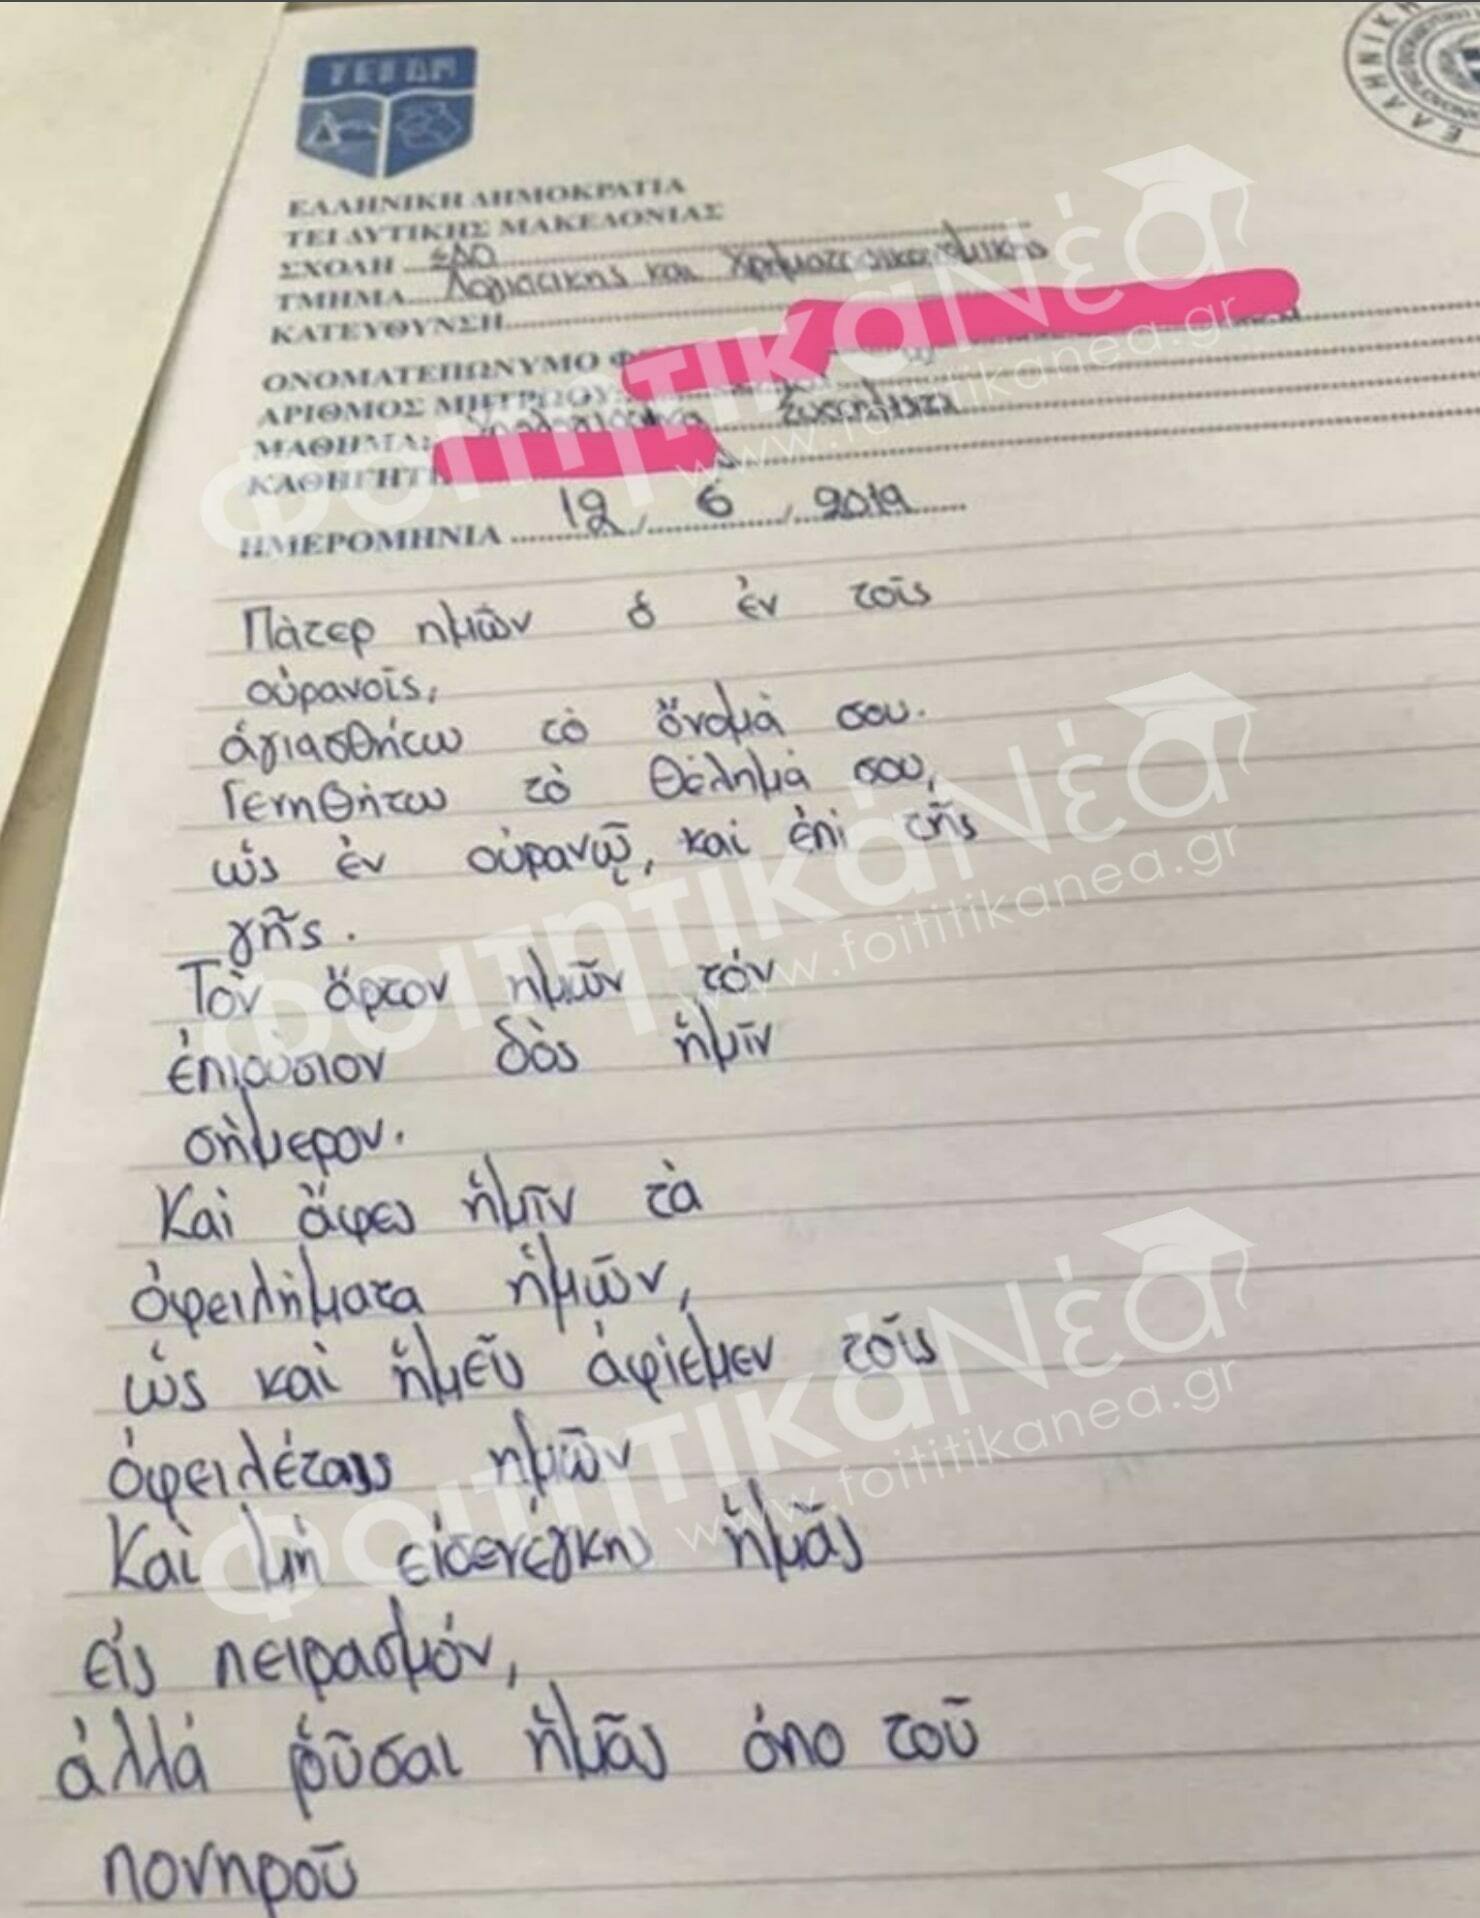 ΤΕΙ ΔΜ
ΕΛΛΗΝΙΚΗ
ΕΛΛΗΝΙΚΗ ΔΗΜΟΚΡΑΤΙΑ
ΤΕΙ ΔΥΤΙΚΗΣ ΜΑΚΕΔΟΝΙΑΣ
ΣΧΟΛΗ ΣΔΟ
ΤΜΗΜΑ Λογιστικης και Χρηματοοικονομικης
ΚΑΤΕΥΘΥΝΣΗ
ΟΝΟΜΑΤΕΠΩΝΥΜΟ Φ
ΑΡΙΘΜΟΣ ΜΗΤΡΩΟΥ:
ΜΑΘΗΜΑ: Συστήματα
ΚΑΘΗΓΗΤΗ
ΗΜΕΡΟΜΗΝΙΑ 12 / 6 / 2019
Πὰτερ ημῶν ὁ ἐν τοῖς
οὐρανοῖς,
ἁγιασθήτω τὸ ὄνομὰ σου.
Γενηθήτω τὸ θέλημά σου,
ὡς ἐν οὐρανῷ, καὶ ἐπὶ τῆς
γῆς.
Τὸν ἄρτον ημῶν τόν
ἐπιούσιον δὸς ἡμῖν
σήμερον.
Καὶ ἄφες ἡμῖν τὰ
ὀφειλήματα ἡμῶν,
ὡς καὶ ἡμεῖς ἀφίεμεν τοῖς
ὀφειλέταις ημῶν
Καὶ μὴ εἰσενέγκης ἡμᾶς
εἰς πειρασμόν,
ἀλλά ῥῦσαι ἡμᾶς ἀπο τοῦ
πονηροῦ
ΦοιτητικάΝέα
www.foititikanea.gr
ΦοιτητικάΝέα
www.foititikanea.gr
ΦοιτητικάΝέα
www.foititikanea.gr